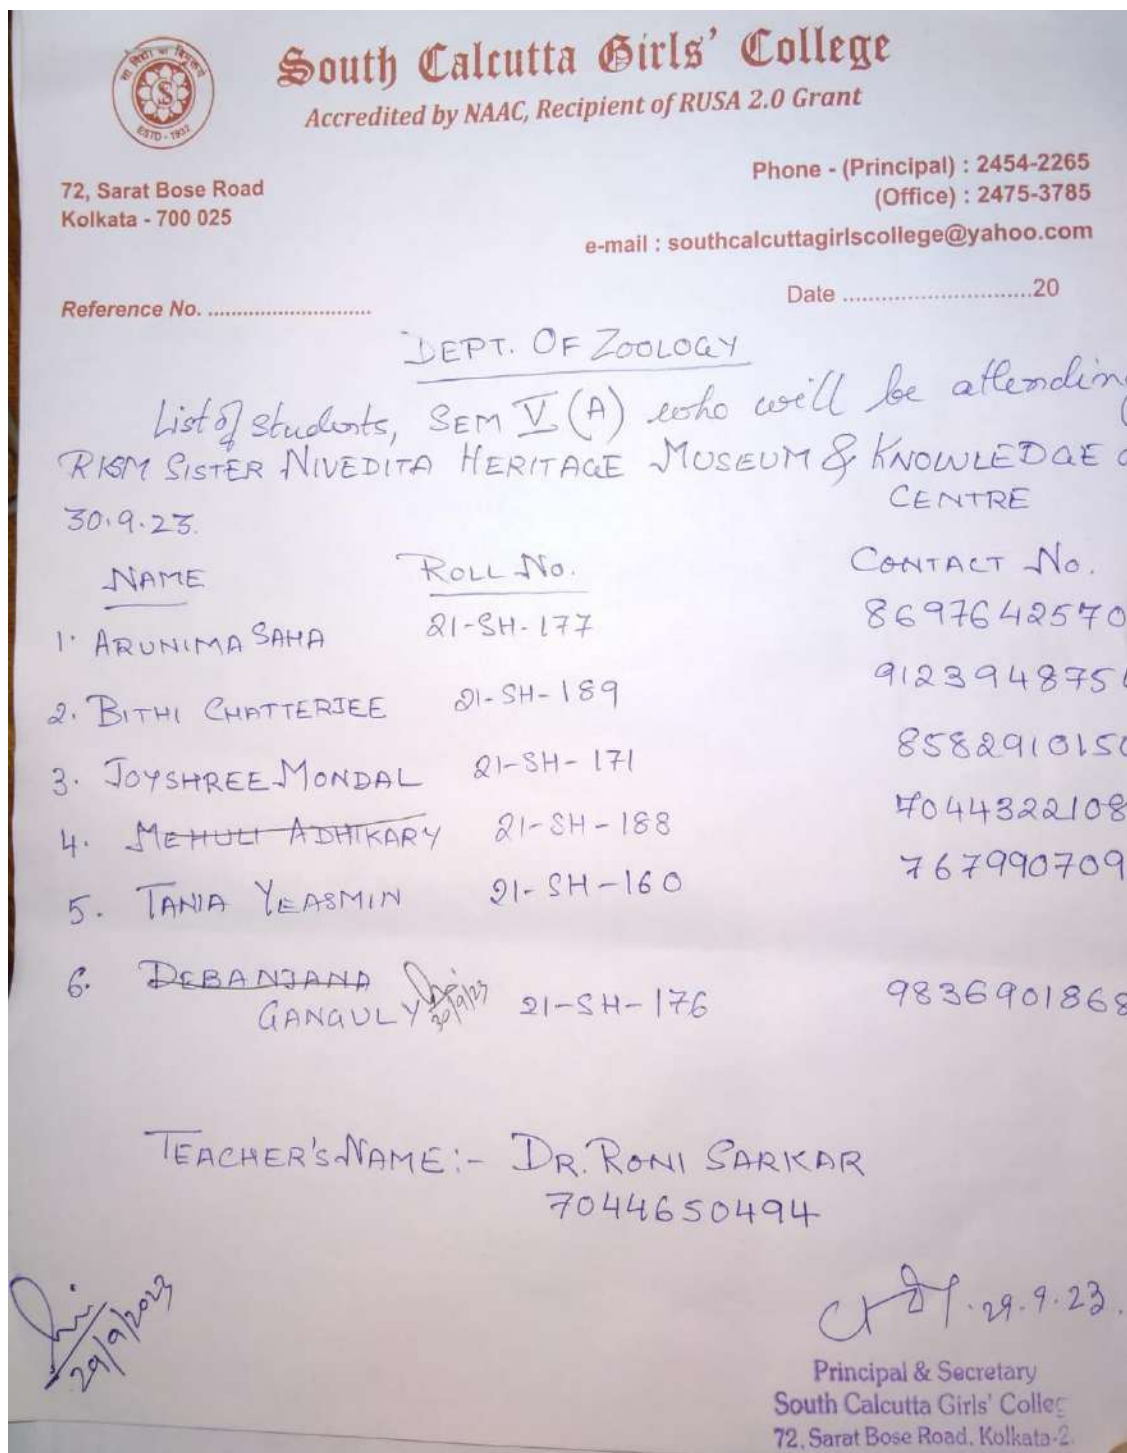 South Calcutta Girls' College
Accredited by NAAC, Recipient of RUSA 2.0 Grant
ESTD - 1932
72, Sarat Bose Road
Kolkata - 700 025
Phone - (Principal) : 2454-2265
(Office) : 2475-3785
e-mail : southcalcuttagirlscollege@yahoo.com
Reference No. ............................
Date ..............................20
DEPT. OF ZOOLOGY
List of students, SEM V (A) who will be attending
RKSM SISTER NIVEDITA HERITAGE MUSEUM & KNOWLEDGE
CENTRE
30.9.23.
NAME ROLL No. CONTACT No.
1. ARUNIMA SAHA 21-SH-177 8697642570
2. BITHI CHATTERJEE 21-SH-189 912394875
3. JOYSHREE MONDAL 21-SH-171 858291015
4. MEHULI ADHIKARY 21-SH-188 7044322108
5. TANIA YEASMIN 21-SH-160 767990709
6. DEBANJANA
GANGULY 30/9/23 21-SH-176 9836901868
TEACHER'S NAME:- DR. RONI SARKAR
7044650494
29/9/2023
29.9.23.
Principal & Secretary
South Calcutta Girls' Colleg
72, Sarat Bose Road, Kolkata-2